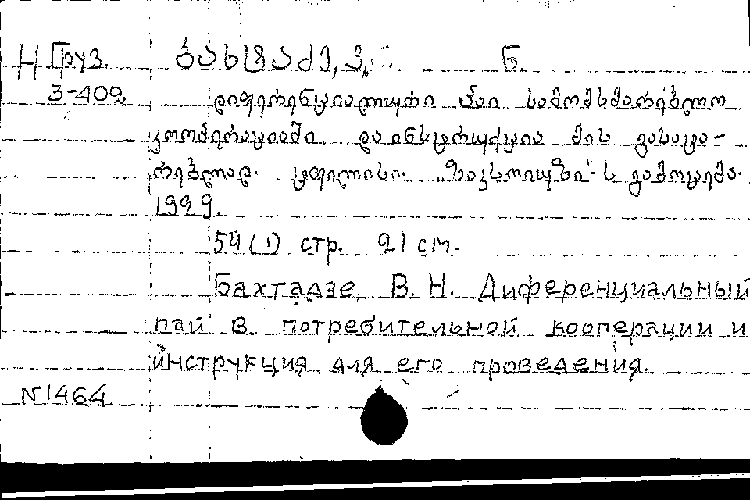 Н Груз. ბახტაძე, ვ. ნ.
3-409 დიფერენციალური პაი სამომხმარებლო
კოოპერაციაში და ინსტრუქცია მის გასატა-
რებლად. ტფილისი. "ზაკსოიუზი"-ს გამოცემა.
1929.
54 (1) стр. 21 см.
Бахтадзе, В. Н. Диференциальный
пай в потребительной кооперации и
инструкция для его проведения.
N1464